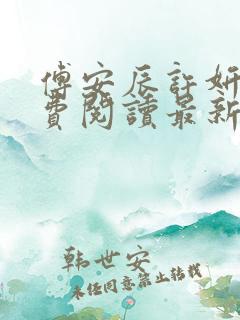 傅安辰許妍
費閱讀最新
韩世安
未经同意禁止转载